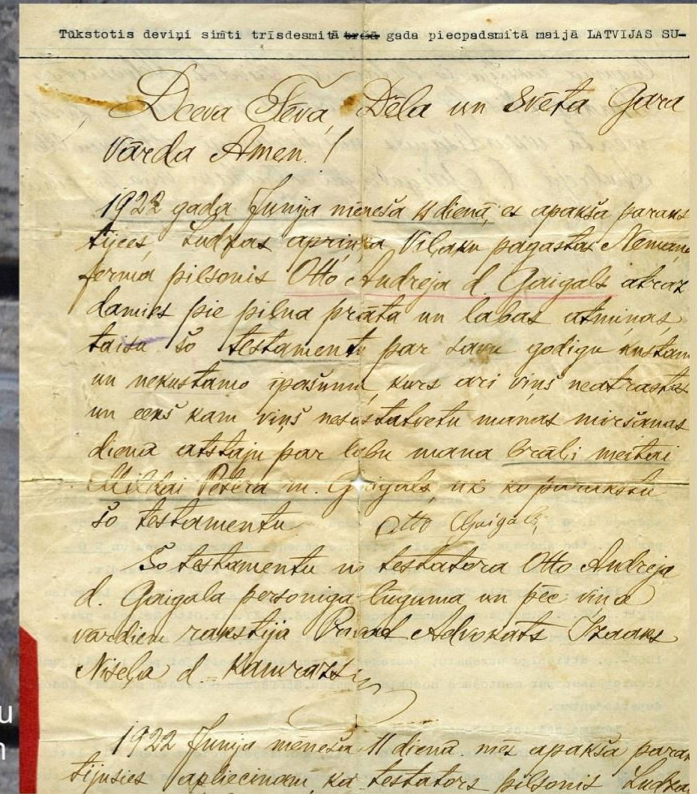 Tūkstotis deviņi simti trīsdesmitā trešā gada piecpadsmitā maijā LATVIJAS SU-
Deeva Tēva, Dēla un Svēta Gara
Vārda Amen!
1922 gada Junija mēneša 11 dienā, es apakša paraks
tijees, Ludzas apriņķa Viļaku pagastas
ferma pilsonis Otto Andreja d. Gaigals atraz
damies pie pilna prāta un labas atmiņas,
taisu šo testamentu par savu godigu kustam
un nekustamo ipašumu, kurs ari viņš neatrastos
un eekš kam viņš nesastatvetu manas miršanas
dienā atstāju par labu mana brāļi meitai
Mildai Pētera m. Gaigals, uz ko parakstu
šo testamentu Otto Gaigals,
Šo testamentu no testatora Otto Andreja
d. Gaigala personiga luguma un pēc viņa
vardiem rakstija Privad Advokats Izaaks
Niseļa d. Kamrazs
1922 Junija mēneša 11 dienā mēs apakša para
tijušies apliecinam, ka testators pilsonis Ludza
u